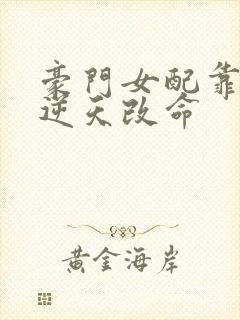 豪門女配靠
逆天改命
黃金海岸